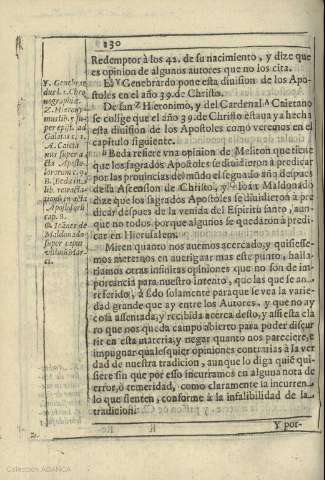 130
Redemptor à los 42. de su nacimiento, y dize que
es opinion de algunos autores que no los cita.
El Y Genebrardo pone esta division de los Apo-
stoles en el año 39. de Christo.
De san Z Hieronimo, y del Cardenal A Caietano
se colige que el año 39. de Christo estaua ya hecha
esta diuisiõ de los Apostoles como veremos en el
capitulo siguiente.
B Beda refiere vna opinion de Meliton que siente
que los sagrados Apostoles se diuidieron à predicar
por las prouincias del mũdo el segundo año despues
de la Ascension de Christo, y Ioan Maldonado
dize que los sagrados Apostoles se diuidieron à pre
dicar despues de la venida del Espiritu santo, aun-
que no todos porque algunos se quedaron à predi-
car en Hierusalem.
Miren quanto nos auemos acercado, y quisiesse-
mos meternos en aueriguar mas este punto, halla-
riamos otras infinitas opiniones que no son de im-
portancia para nuestro intento, que las que se an
referido, à sido solamente para que se vea la varie-
dad grande que ay entre los Autores, y que no ay
cosa assentada, y recibida acerca desto, y assi esta cla
ro que nos queda campo abierto para poder discur
rir en esta materia, y negar quanto nos pareciere, e
impugnar qualesquier opiniones contrarias à la ver
dad de nuestra tradicion, aunque lo diga quie qui-
siere sin que por esso incurramos en alguna nota de
error, ò temeridad, como claramente la incurren
lo que sienten, conforme à la infalibilidad de la
tradicion.
Y por-
Y. Genebrar
duc l. 2. Chro
nographiæ.
Z. Hierony
mus lib. 1. su
per epist. ad
Galatas c. 1.
A. Caieta
nus super a
cta Aposto
lorum c. 9.
B. Beda in
lib. retractio
nis in acta
Apostolorũ
cap. 8.
Maldonado
Colección ABANCA